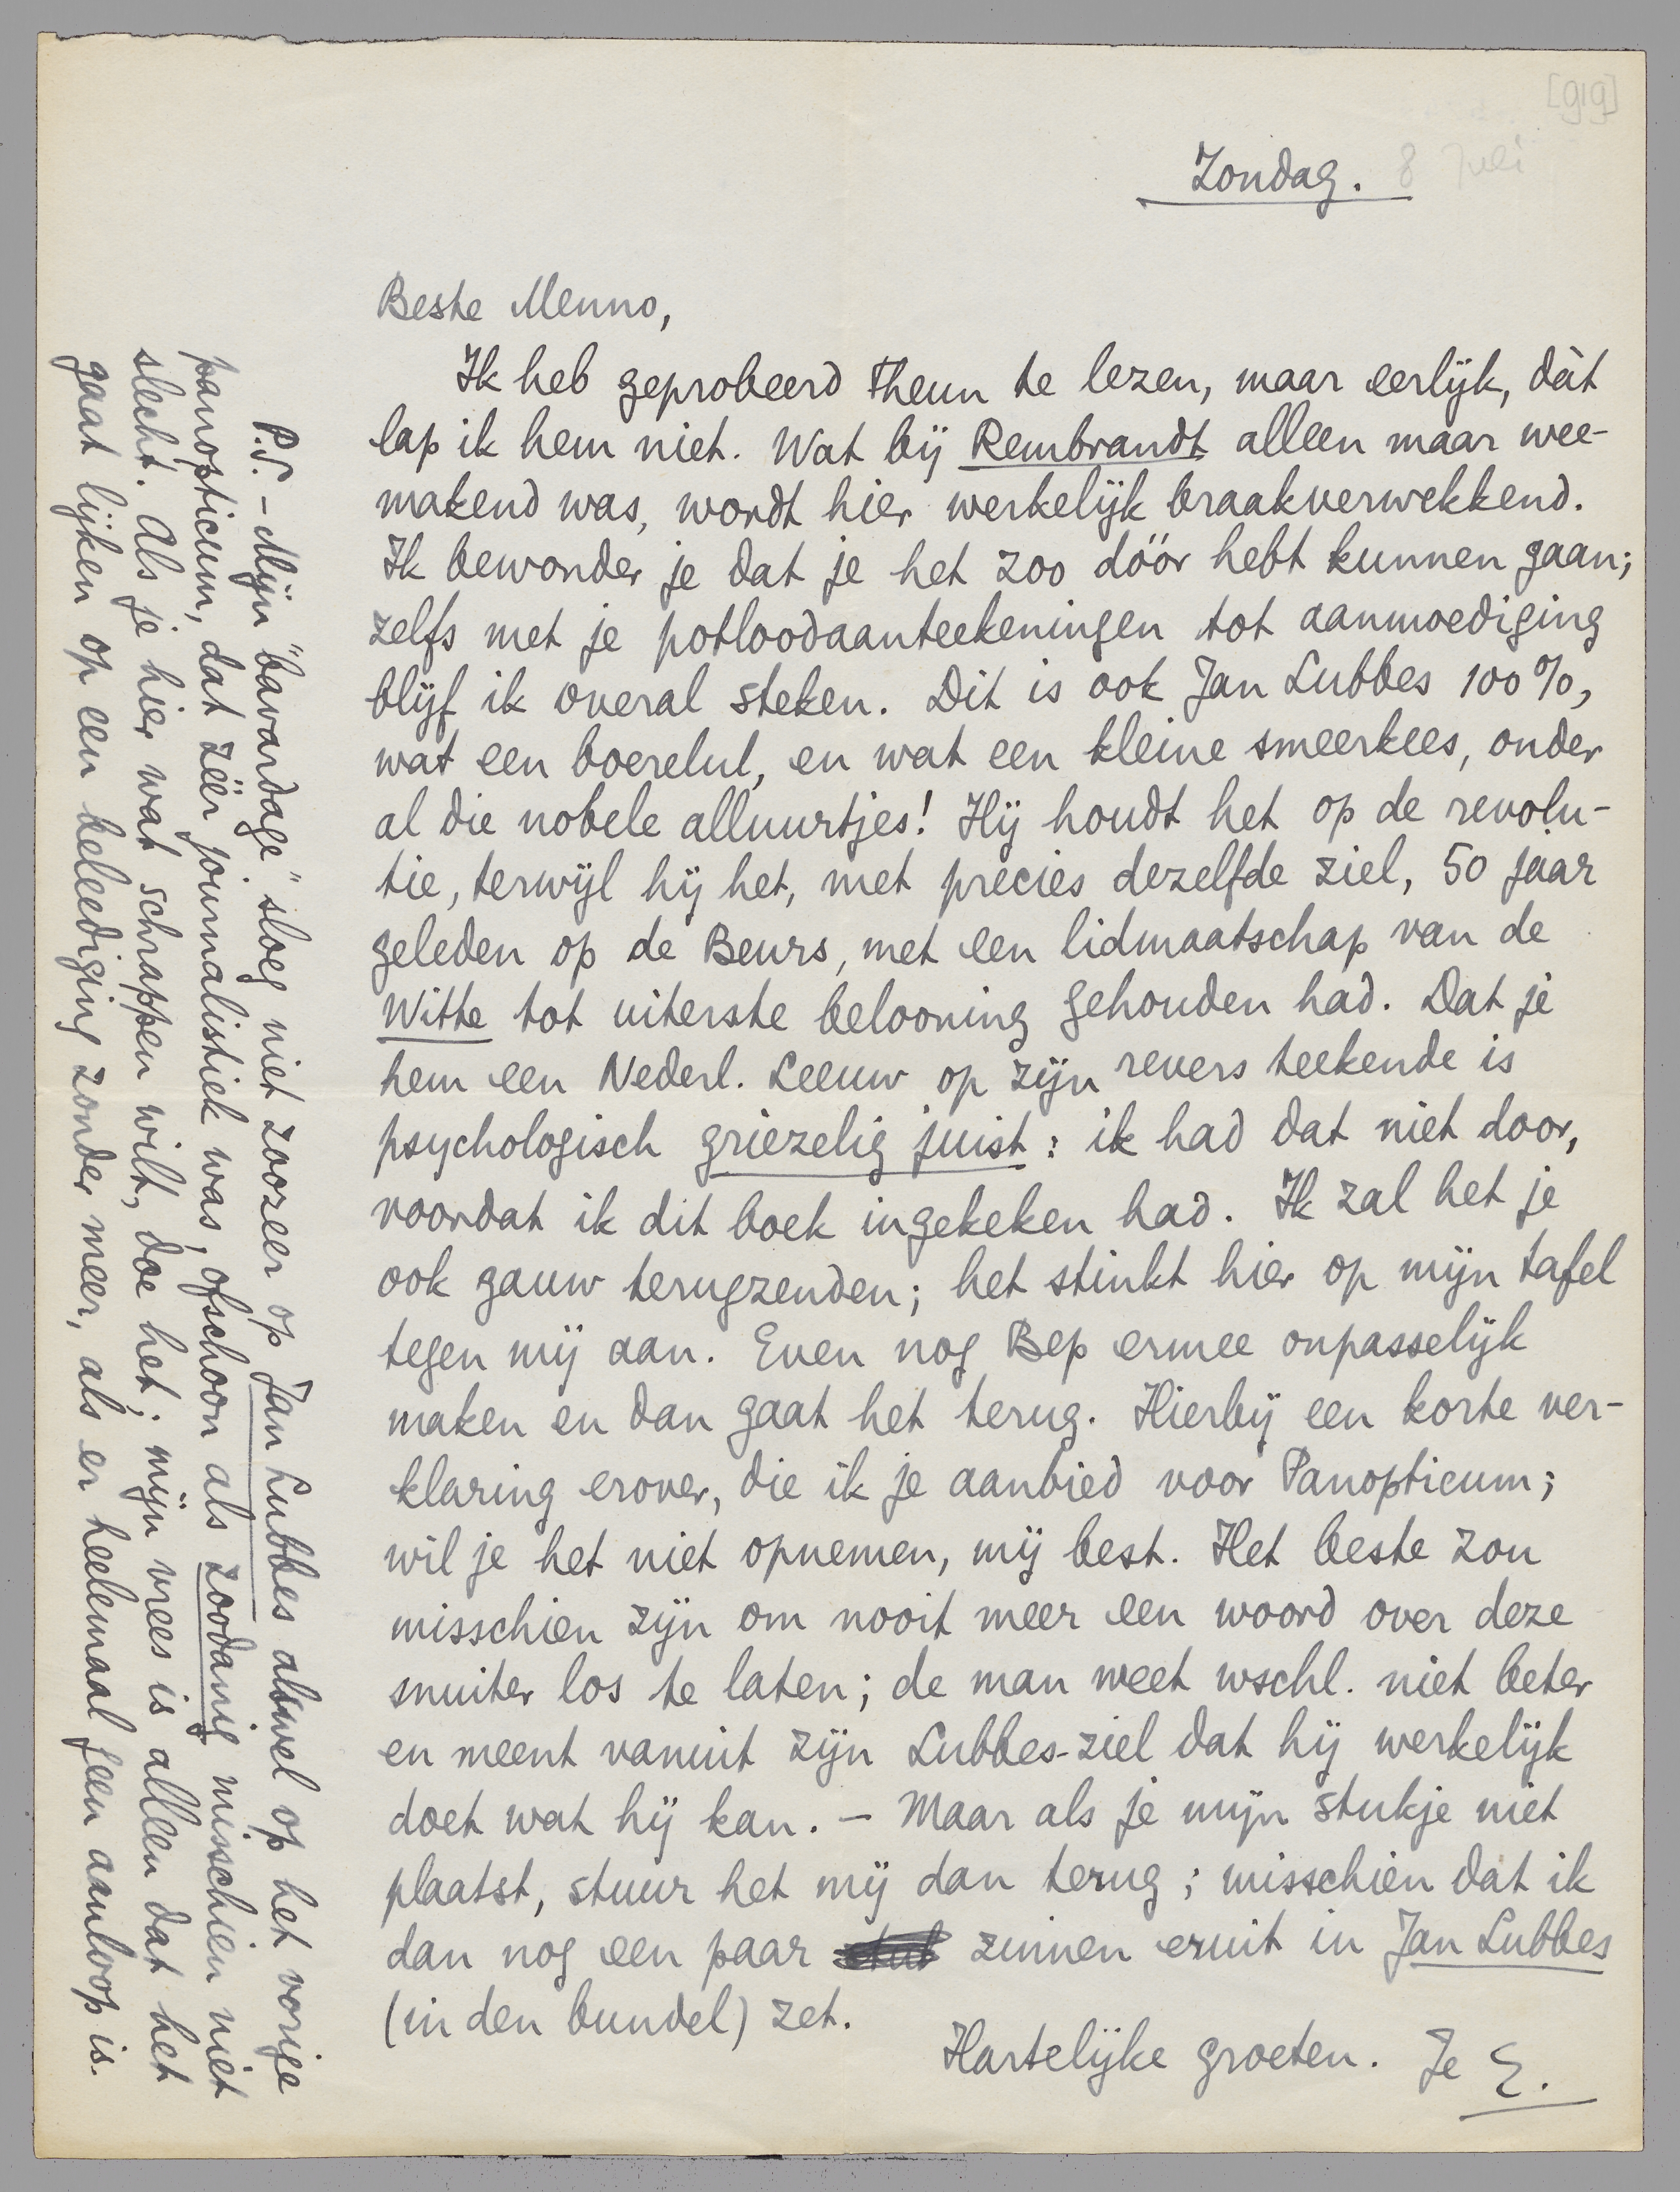 [919]
Zondag. 8 Juli
Beste Menno,
Ik heb geprobeerd Theun te lezen, maar eerlijk, dàt
lap ik hem niet. Wat bij Rembrandt alleen maar wee-
makend was, wordt hier werkelijk braakverwekkend.
Ik bewonder je dat je het zoo dóór hebt kunnen gaan;
zelfs met je potloodaanteekeningen tot aanmoediging
blijf ik overal steken. Dit is ook Jan Lubbes 100%,
wat een boerelul, en wat een kleine smeerkees, onder
al die nobele alluurtjes! Hij houdt het op de revolu-
tie, terwijl hij het, met precies dezelfde ziel, 50 jaar
geleden op de Beurs, met een lidmaatschap van de
Witte tot uiterste belooning gehouden had. Dat je
hem een Nederl. Leeuw op zijn revers teekende is
psychologisch griezelig juist: ik had dat niet door,
voordat ik dit boek ingekeken had. Ik zal het je
ook gauw terugzenden; het stinkt hier op mijn tafel
tegen mij aan. Even nog Bep ermee onpasselijk
maken en dan gaat het terug. Hierbij een korte ver-
klaring erover, die ik je aanbied voor Panopticum;
wil je het niet opnemen, mij best. Het beste zou
misschien zijn om nooit meer een woord over deze
snuiter los te laten; de man weet wschl. niet beter
en meent vanuit zijn Lubbes-ziel dat hij werkelijk
doet wat hij kan. – Maar als je mijn stukje niet
plaatst, stuur het mij dan terug; misschien dat ik
dan nog een paar zinnen eruit in Jan Lubbes
(in den bundel) zet.
Hartelijke groeten. Je E.
P.S. – Mijn "bavardage" sloeg niet zoozeer op Jan Lubbes alswel op het vorige
panopticum, dat zéér journalistiek was, ofschoon als zoodanig misschien niet
slecht. Als je hier wat schrappen wilt, doe het; mijn vrees is alleen dat het
gaat lijken op een beleediging zonder meer, als er heelemaal geen aanloop is.